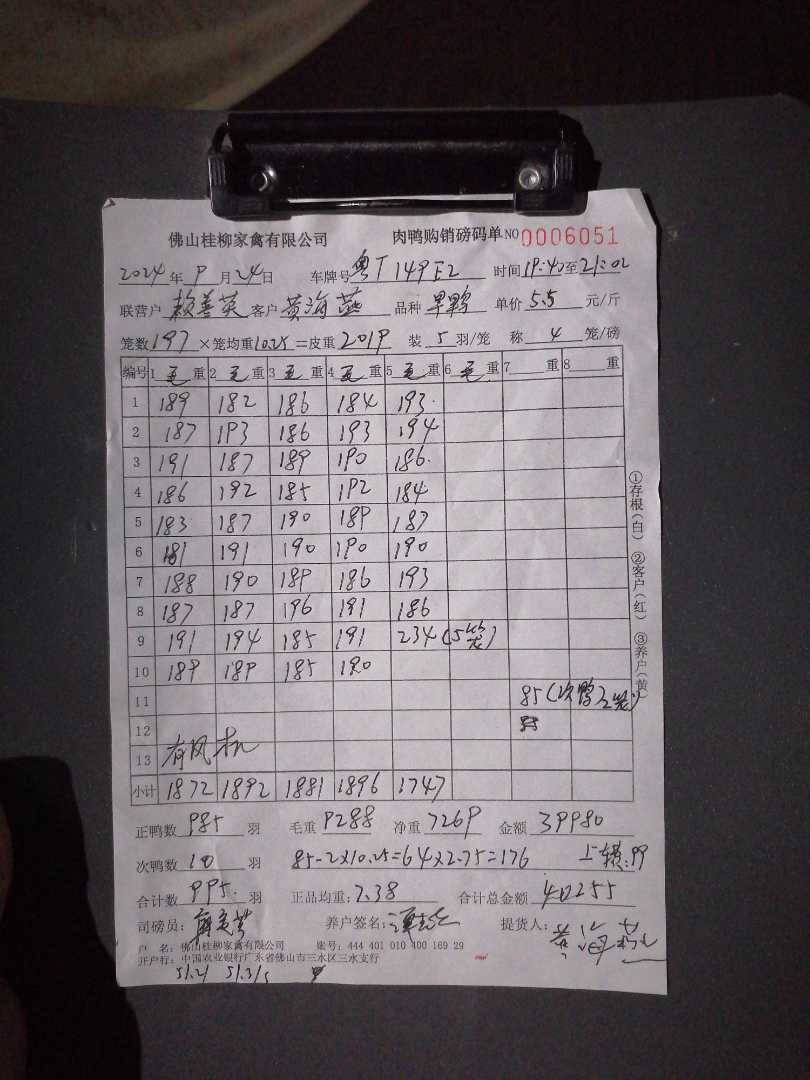 佛山桂柳家禽有限公司 肉鸭购销磅码单 NO 0006051
2024 年 9 月 24 日 车牌号 粤T 149F2 时间 19:42 至 21:02
联营户 赖善英 客户 黄海燕 品种 旱鸭 单价 5.5 元/斤
笼数 197 ×笼均重 10.25 =皮重 2019 装 5 羽/笼 称 4 笼/磅
编号 1 毛 重 2 毛 重 3 毛 重 4 毛 重 5 毛 重 6 毛 重 7 重 8 重
1 189 182 186 184 193
2 187 193 186 193 194
3 191 187 189 190 186
4 186 192 185 192 184
5 183 187 190 189 187
6 181 191 190 190 190
7 188 190 189 186 193
8 187 187 196 191 186
9 191 194 185 191 234 (5笼)
10 189 189 185 190
11 85 (次鸭2笼)
12
13 有风机
小计 1872 1892 1881 1896 1747
①存根(白) ②客户(红) ③养户(黄)
正鸭数 985 羽 毛重 9288 净重 7269 金额 39980
次鸭数 10 羽 85-2×10.25=64×2.75=176 上车费:99
合计数 995 羽 正品均重: 7.38 合计总金额 40255
司磅员: 养户签名: 提货人: 黄海燕
户 名: 佛山桂柳家禽有限公司 账号: 444 401 010 400 169 29
开户行: 中国农业银行广东省佛山市三水区三水支行